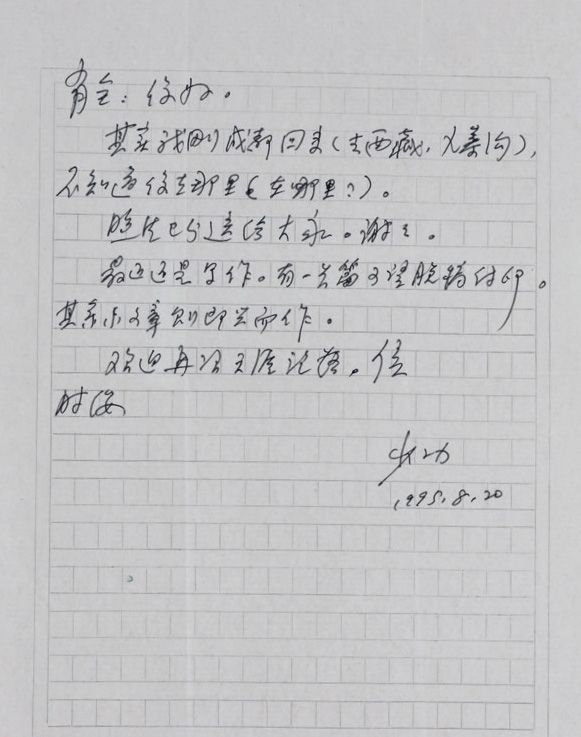 育全：你好。
其实我刚成都回来（去西藏，九寨沟），
不知道你在那里（在哪里？）。
照片已分送给大家。谢谢。
最近还是写作。有一长篇可望脱稿付印。
其余小文章则即兴而作。
欢迎再次天涯论赛。信
时安
少功
1995.8.20